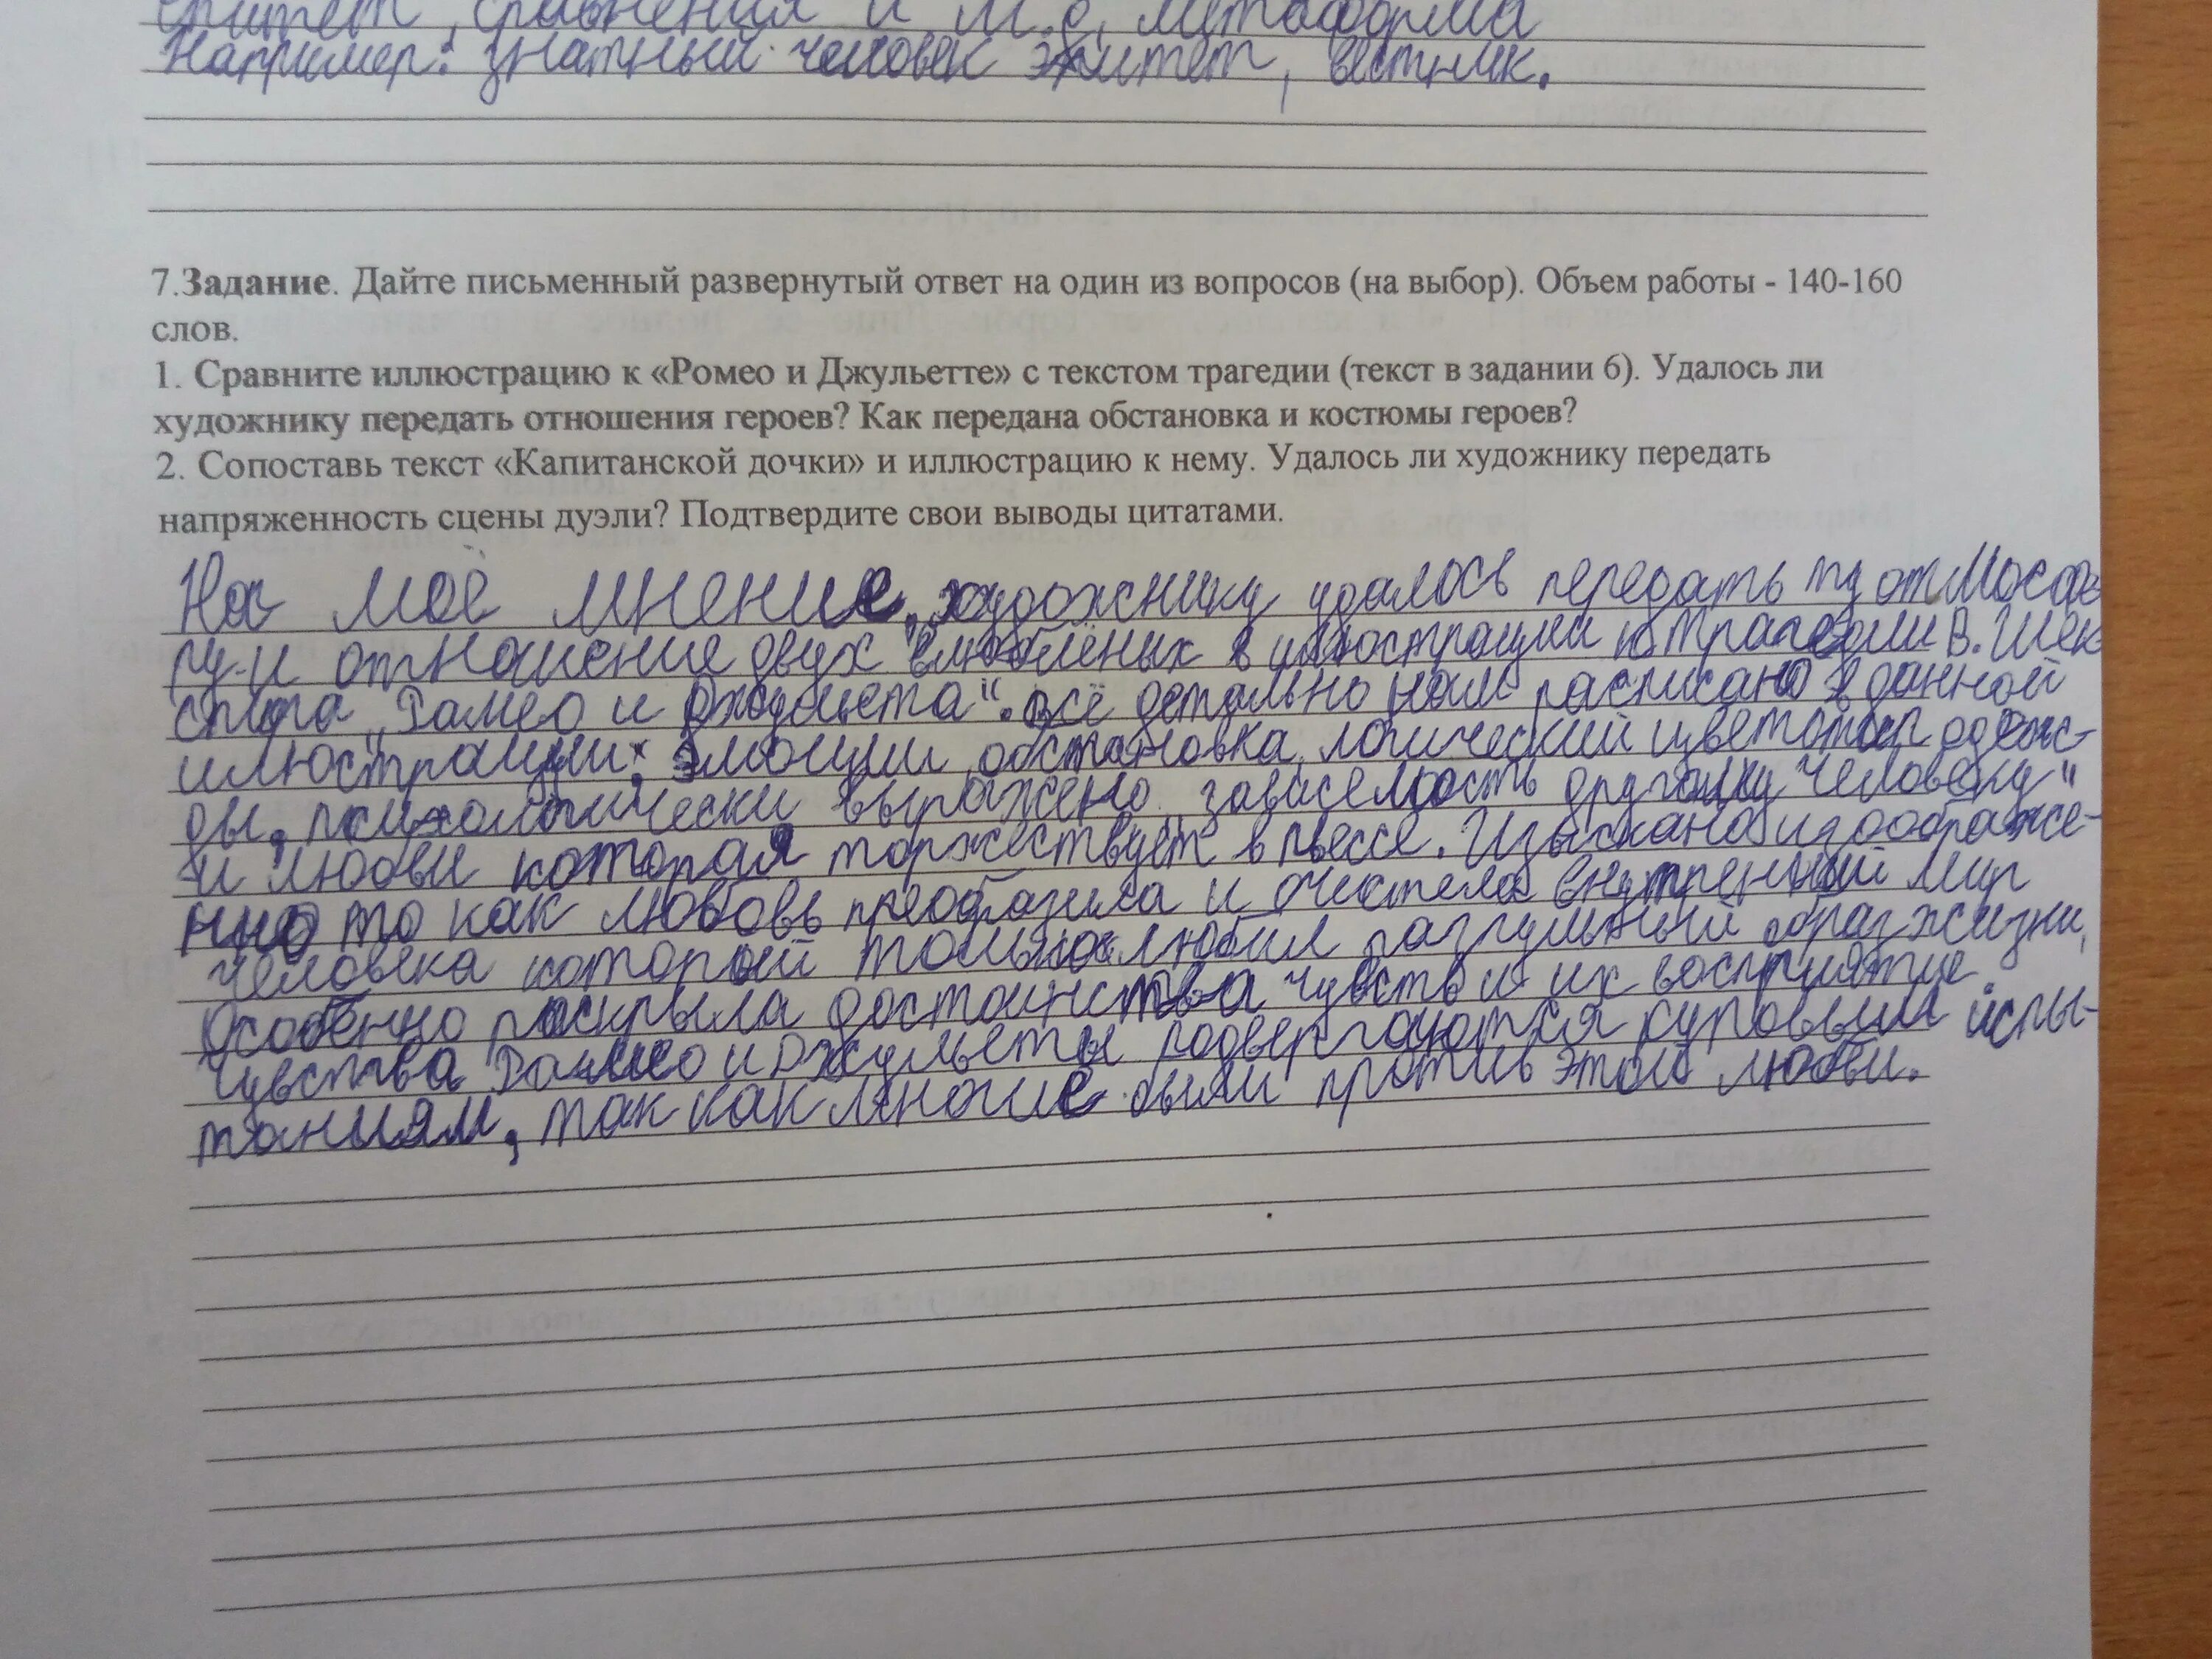 эпитет, сравнения и м.д, метаформа
Например: знатный человек эпитет, вестник.
7.Задание. Дайте письменный развернутый ответ на один из вопросов (на выбор). Объем работы - 140-160
слов.
1. Сравните иллюстрацию к «Ромео и Джульетте» с текстом трагедии (текст в задании 6). Удалось ли
художнику передать отношения героев? Как передана обстановка и костюмы героев?
2. Сопоставь текст «Капитанской дочки» и иллюстрацию к нему. Удалось ли художнику передать
напряженность сцены дуэли? Подтвердите свои выводы цитатами.
На моё мнение, художнику удалось передать ту отмосфе
ру и отношение двух влюблёных в илюстрации к трагедии В. Шек
спира „Ромео и Джульета". Всё детально нам расписано в данной
илюстрации: эмоции, обстановка, логический цветотип одеж-
ды, психологически выражено „зависемость другому человеку"
и любви которая торжествует в пьессе. Изыскано изображе-
нно то как любовь преобразила и очистела внутрений мир
человека который только любил разгульный образ жизни,
Особенно раскрыла достоинства чувств и их восприятие
Чувства Ромео и Джульеты подвергаются суровым испы-
таниям, так как многие были против этой любви.